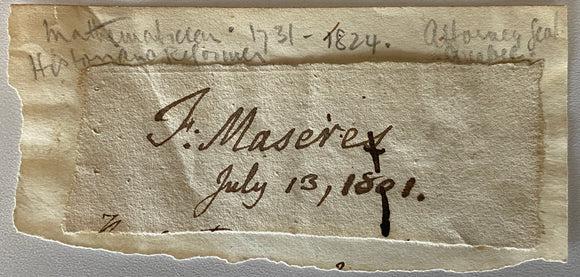 Mathematician. 1731 - 1824. Attorney Genl
Historian & Reformer Quebec
F: Maseres
July 13, 1801.